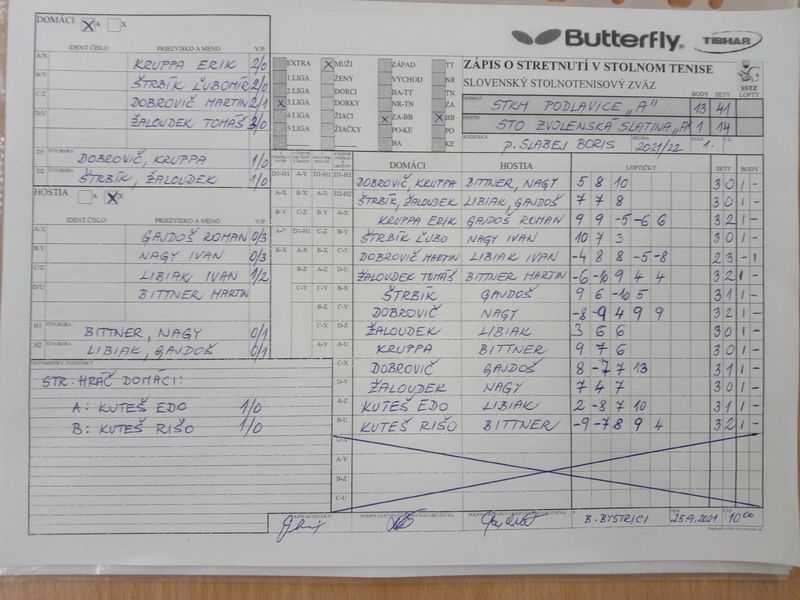 DOMÁCI X A X
IDENT ČÍSLO PRIEZVISKO A MENO V/P
A/X KRUPPA ERIK 2/0
B/Y ŠTRBÍK ĽUBOMÍR 2/0
C/Z DOBROVIČ MARTIN 2/1
D/U ŽALOUDEK TOMÁŠ 3/0
D1 DOBROVIČ, KRUPPA 1/0
D2 ŠTRBÍK, ŽALOUDEK 1/0
HOSTIA A X
IDENT ČÍSLO PRIEZVISKO A MENO V/P
A/X GAJDOŠ ROMAN 0/3
B/Y NAGY IVAN 0/3
C/Z LIBIAK IVAN 1/2
D/U BITTNER MARTIN
H1 BITTNER, NAGY 0/1
H2 LIBIAK, GAJDOŠ 0/1
STR. HRÁČ DOMÁCI:
A: KUTEŠ EDO 1/0
B: KUTEŠ RIŠO 1/0
Butterfly TIBHAR
ZÁPIS O STRETNUTÍ V STOLNOM TENISE
SLOVENSKÝ STOLNOTENISOVÝ ZVÄZ
SSTZ
EXTRA X MUŽI ZÁPAD TT
1 LIGA ŽENY VÝCHOD NR
2 LIGA DORCI BA-TT TN
X 3 LIGA DORKY NR-TN ZA
4 LIGA ŽIACI X ZA-BB X BB
5 LIGA ŽIAČKY PO-KE PO
BA KE
BODY SETY LOPTY
DOMÁCI STKM PODLAVICE „A" 13 41
HOSTIA STO ZVOLENSKÁ SLATINA „A" 1 14
ROZHODCA p. SLABEJ BORIS SEZÓNA 2021/22 Č.K. 1.
DOMÁCI HOSTIA LOPTIČKY SETY BODY
D1-H1 DOBROVIČ, KRUPPA BITTNER, NAGY 5 8 10 3 0 1 -
D2-H2 ŠTRBÍK, ŽALOUDEK LIBIAK, GAJDOŠ 7 7 8 3 0 1 -
A-X KRUPPA ERIK GAJDOŠ ROMAN 9 9 -5 -6 6 3 2 1 -
B-Y ŠTRBÍK ĽUBO NAGY IVAN 10 7 3 3 0 1 -
C-Z DOBROVIČ MARTIN LIBIAK IVAN -4 8 8 -5 -8 2 3 - 1
D-U ŽALOUDEK TOMÁŠ BITTNER MARTIN -6 -10 9 4 4 3 2 1 -
B-X ŠTRBÍK GAJDOŠ 9 6 -10 5 3 1 1 -
C-Y DOBROVIČ NAGY -8 -9 4 9 9 3 2 1 -
D-Z ŽALOUDEK LIBIAK 3 6 6 3 0 1 -
A-U KRUPPA BITTNER 9 7 6 3 0 1 -
C-X DOBROVIČ GAJDOŠ 8 -7 7 13 3 1 1 -
D-Y ŽALOUDEK NAGY 7 4 7 3 0 1 -
A-Z KUTEŠ EDO LIBIAK 2 -8 7 10 3 1 1 -
B-U KUTEŠ RIŠO BITTNER -9 -7 8 9 4 3 2 1 -
D-X
A-Y
B-Z
C-U
V B. BYSTRICI 25.9.2021 10:00